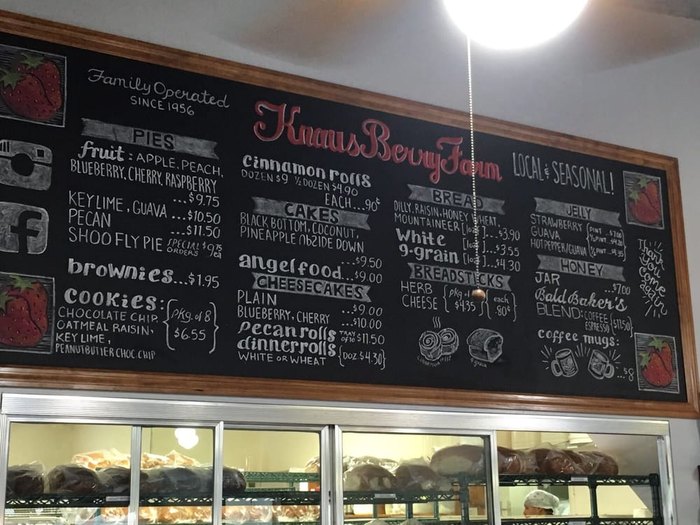 Family Operated
SINCE 1956
Knaus Berry Farm
LOCAL & SEASONAL!
PIES
fruit: APPLE, PEACH,
BLUEBERRY, CHERRY, RASPBERRY
...$9.75
KEY LIME, GUAVA ...$10.50
PECAN ...$11.50
SHOO FLY PIE SPECIAL ORDERS $9.75
brownies...$1.95
cookies:
CHOCOLATE CHIP,
OATMEAL RAISIN,
KEY LIME,
PEANUTBUTTER CHOC CHIP
PKg. of 8
$6.55
cinnamon rolls
DOZEN $9 ½ DOZEN $4.90
EACH...90¢
CAKES
BLACK BOTTOM, COCONUT,
PINEAPPLE UPSIDE DOWN
...$9.50
angel food...$9.00
CHEESECAKES
PLAIN ...$9.00
BLUEBERRY, CHERRY ...$10.00
pecan rolls $11.50
dinner rolls
WHITE or WHEAT {DOZ $4.30}
BREAD
DILLY, RAISIN, HONEY WHEAT,
MOUNTAINEER ...$3.90
White ...$3.55
9-grain ...$4.30
BREADSTICKS
HERB
CHEESE
$4.35
each
80¢
JELLY
STRAWBERRY
GUAVA
HOT PEPPER/GUAVA
HONEY
JAR ...$7.00
Bald Baker's
BLEND: COFFEE
ESPRESSO $11.50
coffee mugs:
...$8
Thank
you
come
again!
f